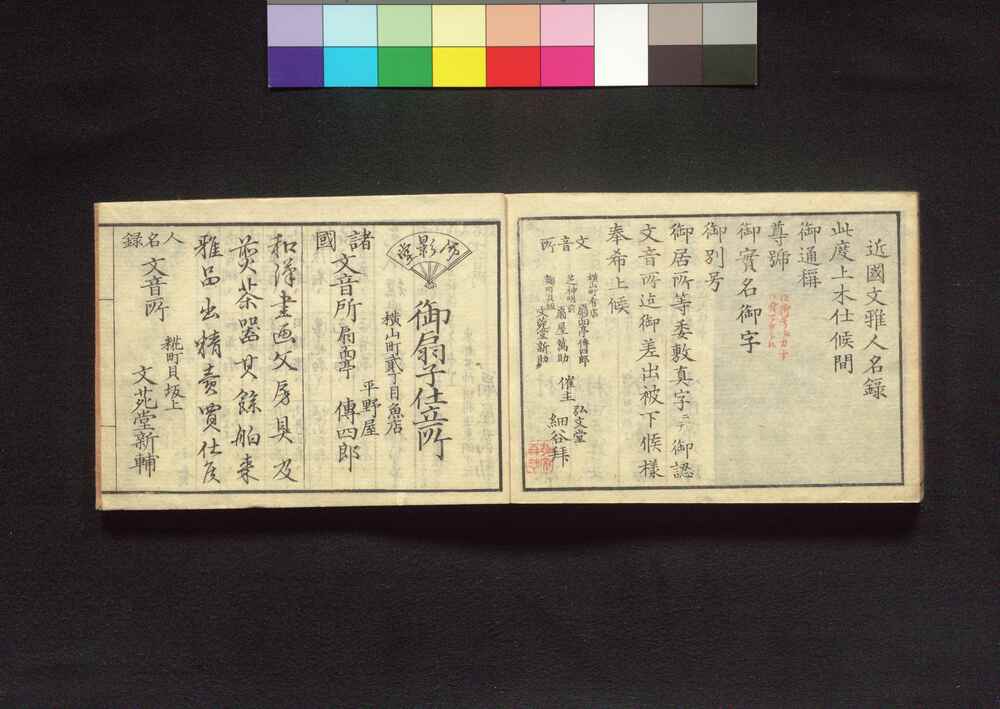 近國文雅人名録
此度上木仕候間
御通稱
尊號
御實名御字
御別号
御居所等委敷真字ニ而御認
文音所迄御差出被下候様
奉希上候
文音所
横山町肴店
扇面亭傳四郎
芝神明前
扇屋萬助
麹町貝坂
文苑堂新助
催主
弘文堂
細谷拜
影堂
御扇子仕立所
横山町貳丁目魚店
平野屋
諸國
文音所
扇面亭
傳四郎
和漢書画文房具及
煎茶器其餘舶来
雅品出精賣買仕候
人名録
文音所
糀町貝坂上
文苑堂新輔